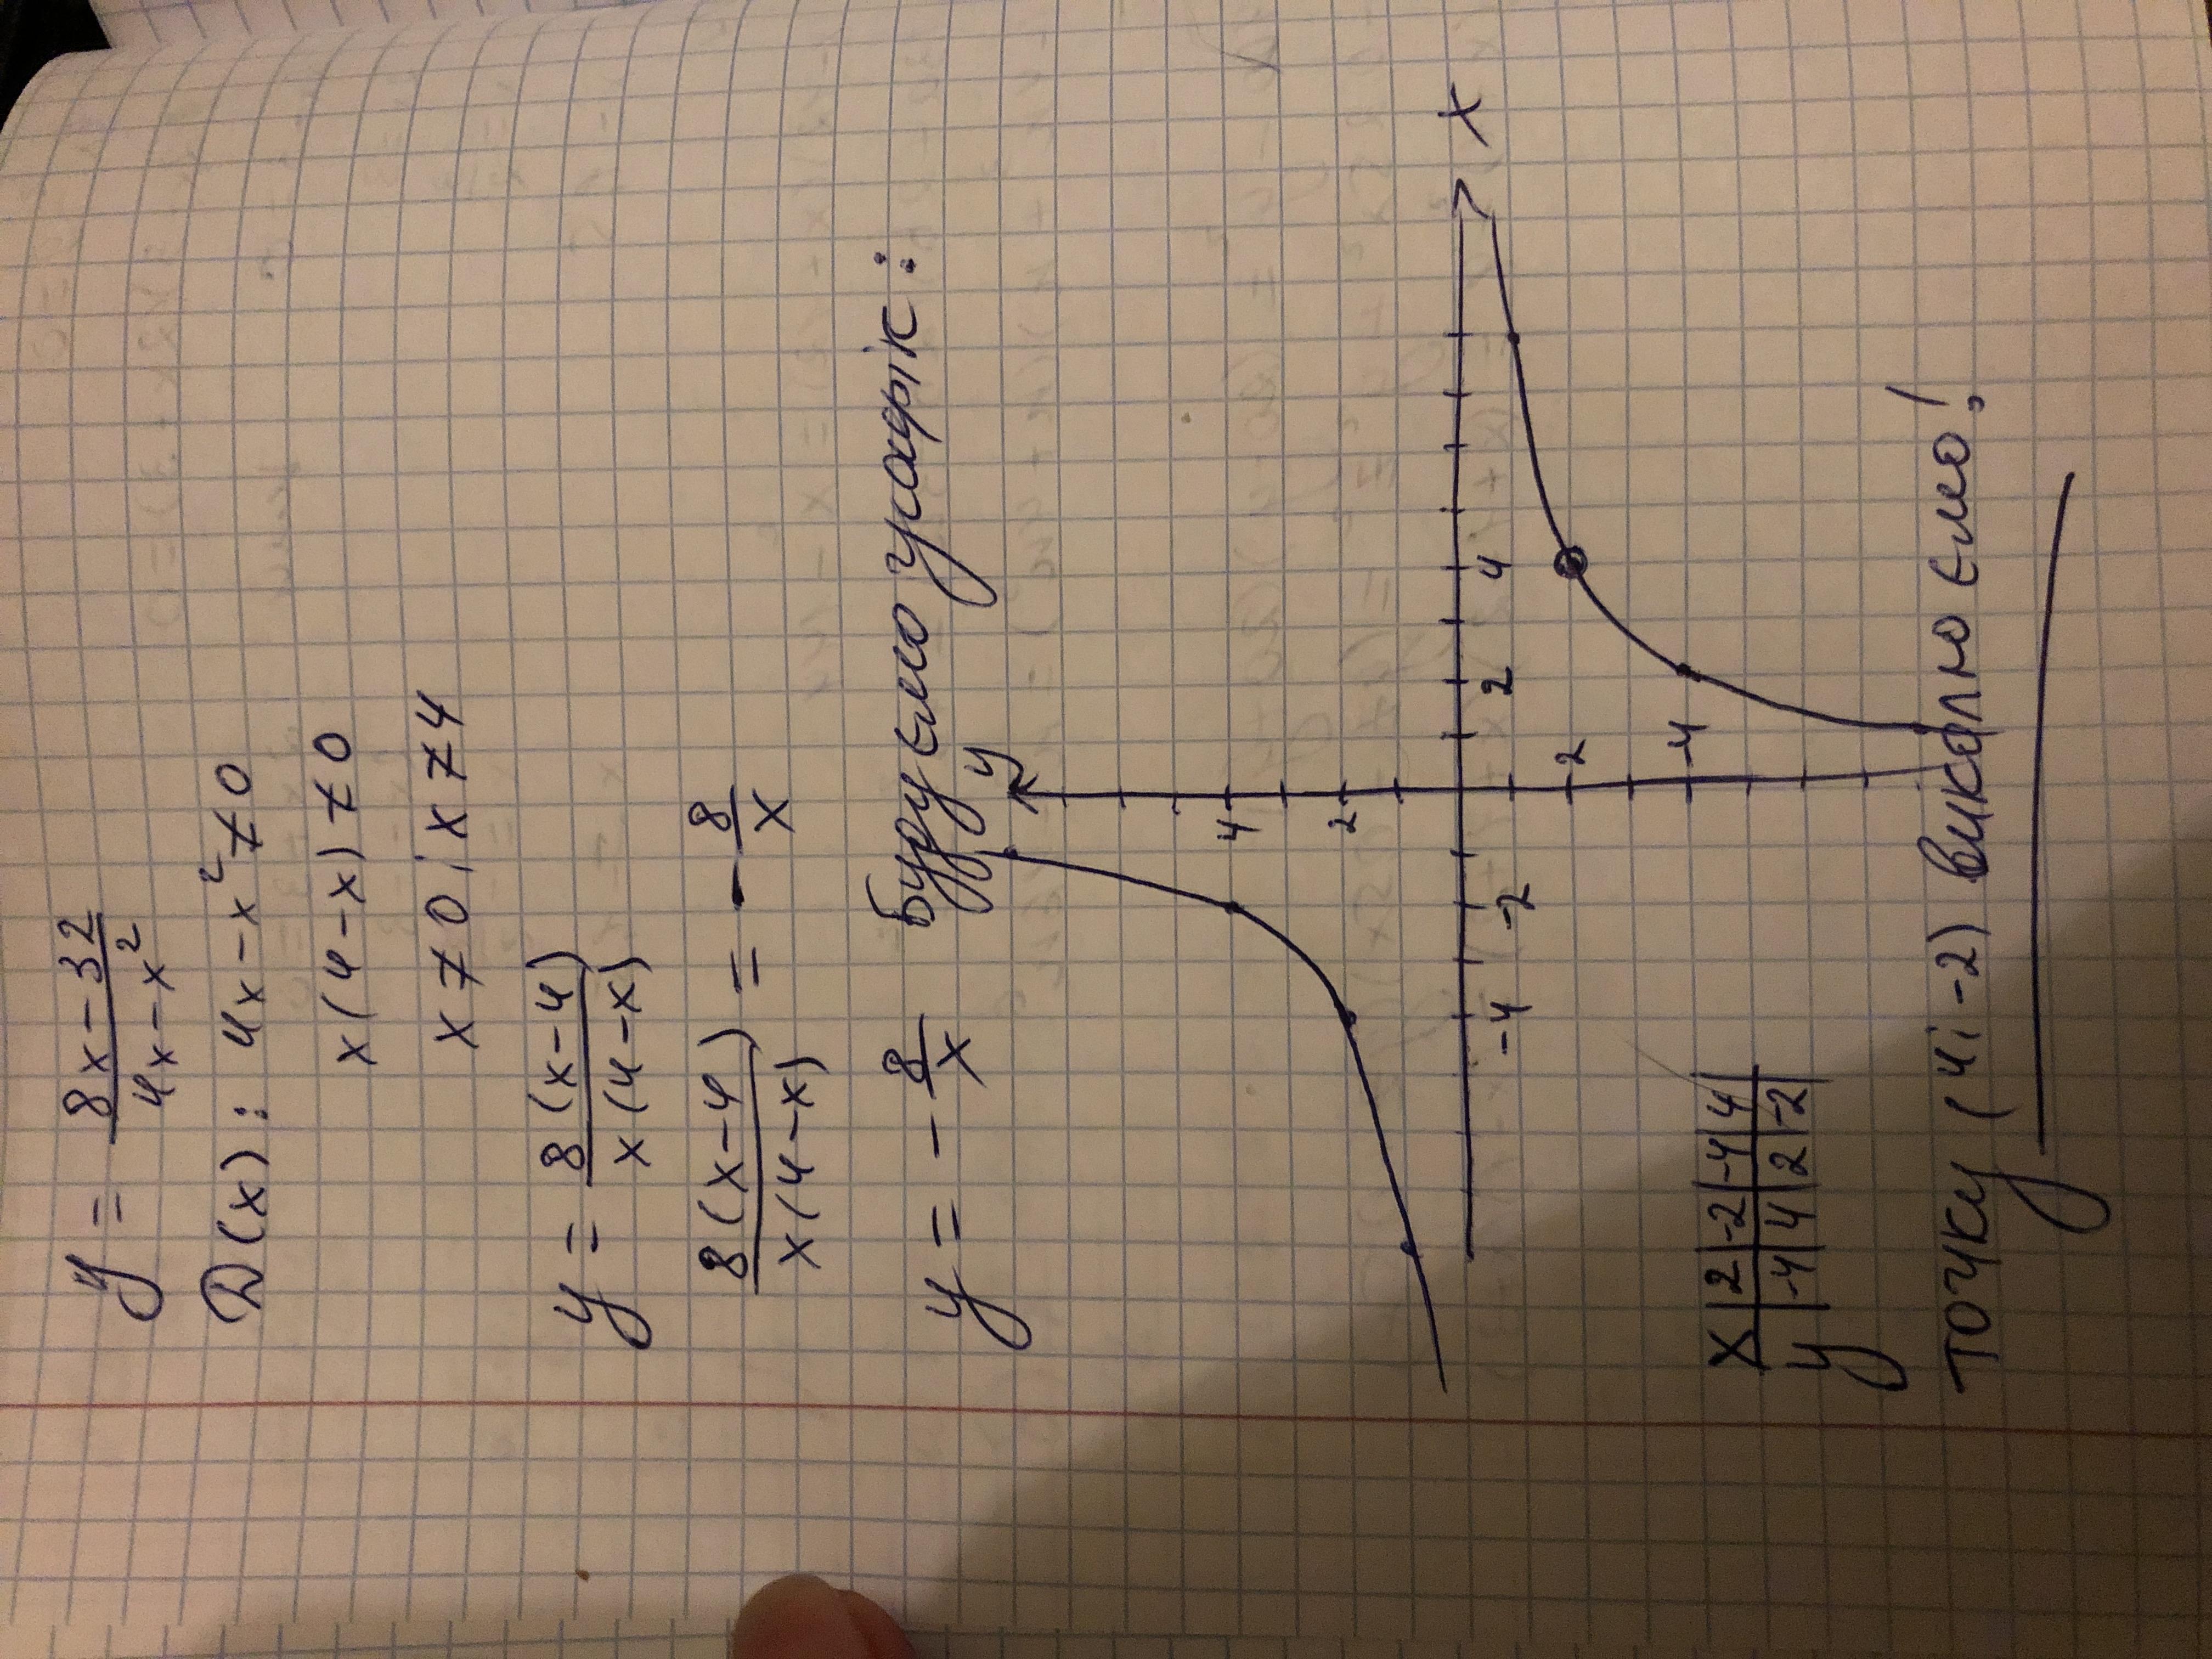 y = (8x-32)/(4x-x²)
D(x): 4x-x²≠0
x(4-x)≠0
x≠0; x≠4
y = 8(x-4)/x(4-x)
8(x-4)/x(4-x) = -8/x
y = -8/x Будуємо графік:
y
4
2
-4 -2 2 4 x
2
-4
x|2|-2|-4|4|
y|-4|4|2|-2|
точку (4; -2) виколюємо!